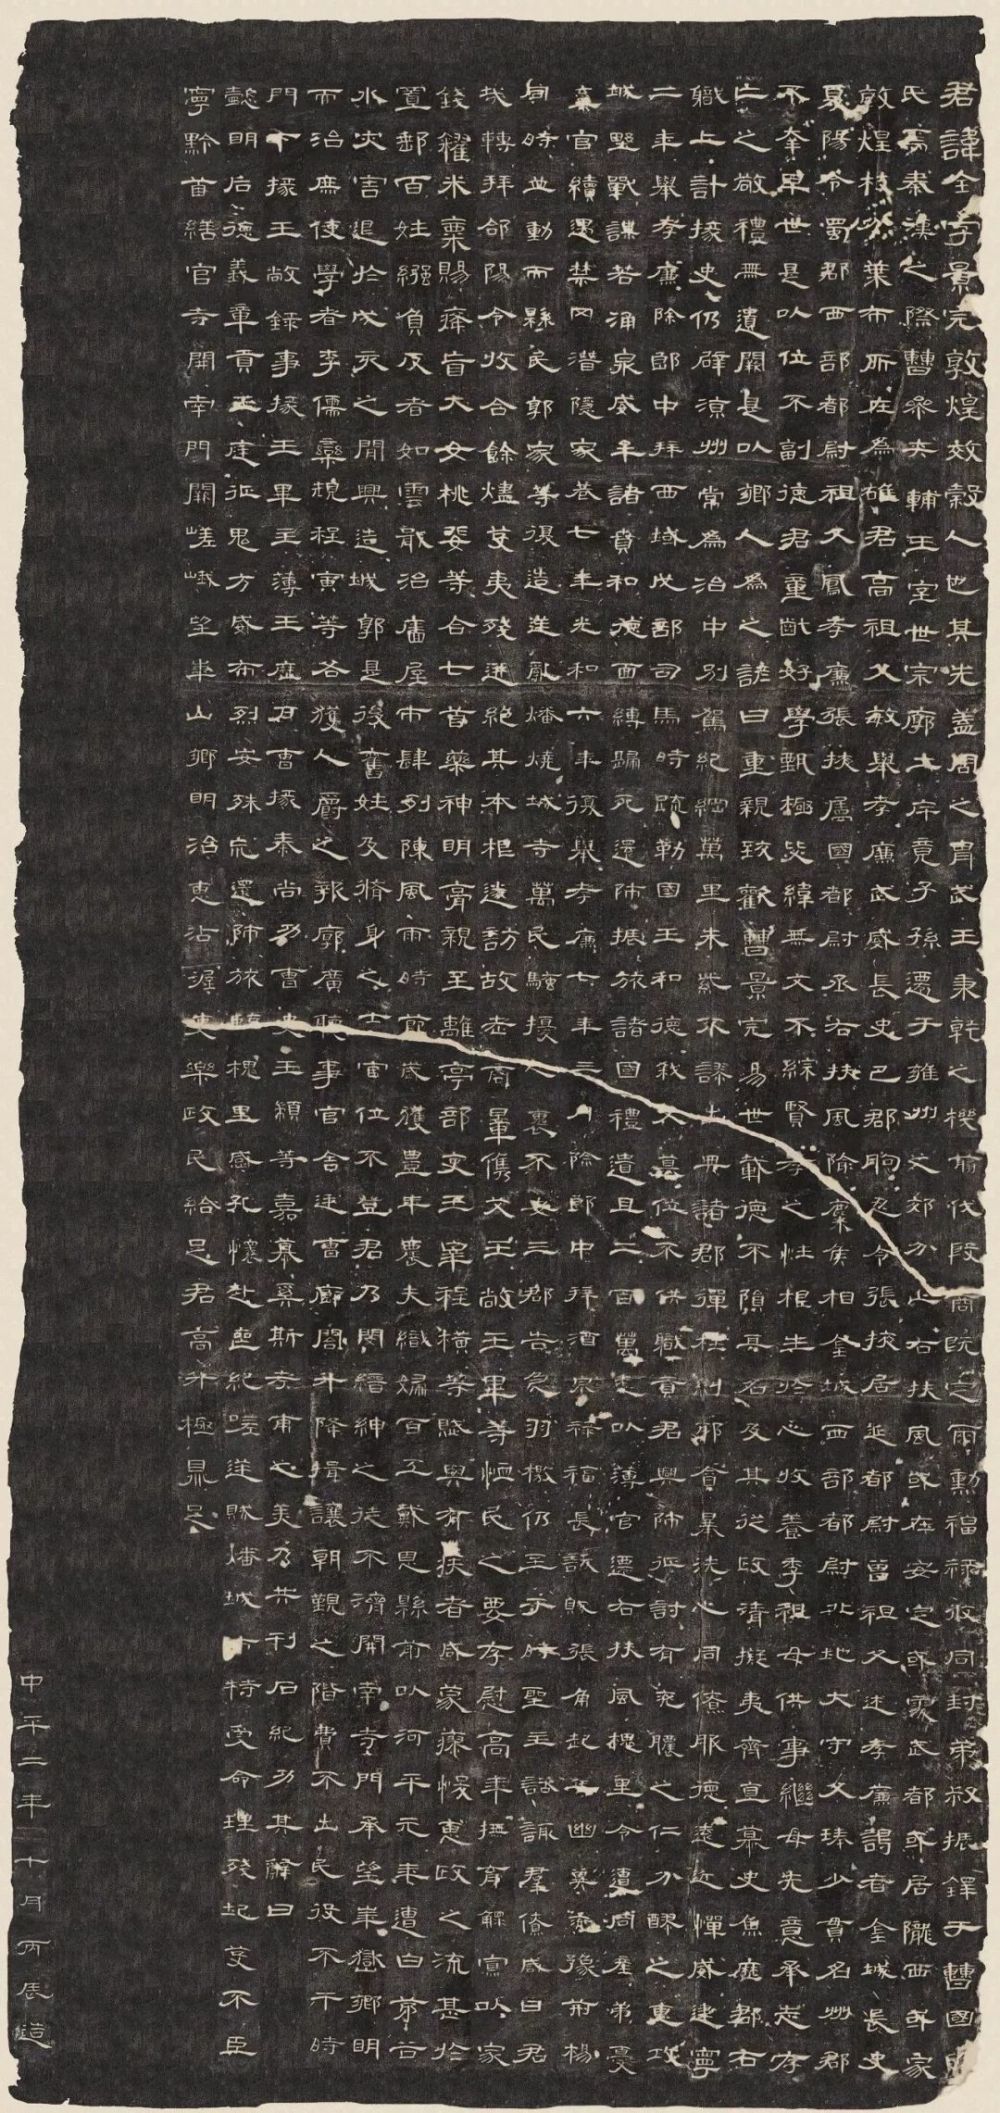 君諱全字景完敦煌效穀人也其先蓋周之胄武王秉乾之機翦伐殷商既定爾勳福祿攸同封弟叔振鐸于曹國因
氏焉秦漢之際曹參夾輔王室世宗廓土斥竟子孫遷于雍州之郊分止右扶風或在安定或處武都或居隴西或家
敦煌枝分葉布所在為雄君高祖父敏舉孝廉武威長史巴郡朐忍令張掖居延都尉曾祖父述孝廉謁者金城長史
夏陽令蜀郡西部都尉祖父鳳孝廉張掖屬國都尉丞右扶風隃麋侯相金城西部都尉北地大守父琫少貫名州郡
不幸早世是以位不副德君童齔好學甄極毖緯無文不綜賢孝之性根生於心收養季祖母供事繼母先意承志存
亡之敬禮無遺闕是以鄉人為之諺曰重親致歡曹景完易世載德不隕其名及其從政清擬夷齊直慕史魚歷郡右
職上計掾史仍辟涼州常為治中別駕紀綱萬里朱紫不謬出典諸郡彈枉糾邪貪暴洗心同僚服德遠近憚威建寧
二年舉孝廉除郎中拜西域戊部司馬時疏勒國王和德弒父篡位不供職貢君興師征討有兗膿之仁分醪之惠攻
城野戰謀若涌泉威牟諸賁和德面縛歸死還師振旅諸國禮遺且二百萬悉以薄官遷右扶風槐里令遭同產弟憂
棄官續遇禁冈潛隱家巷七年光和六年復舉孝廉七年三月除郎中拜酒泉祿福長訞賊張角起兵幽冀兗豫荊楊
同時並動而縣民郭家等復造逆亂燔燒城寺萬民騷擾人裹不安三郡告急羽檄仍至于時聖主諮諏群僚咸曰君
哉轉拜郃陽令收合餘燼芟夷殘迸絕其本根遂訪故老商量儁艾王敞王畢等恤民之要存慰高年撫育鰥寡以家
錢糴米粟賜癃盲大女桃婓等合七首藥神明膏親至離亭部吏王宰程橫等賦與有疾者咸蒙瘳悛惠政之流甚於
置郵百姓繈負反者如雲戢治廧屋市肆列陳風雨時節歲獲豐年農夫織婦百工戴恩縣前以河平元年遭白茅谷
水灾害退於戊亥之閒興造城郭是後舊姓及脩身之士官位不登君乃閔縉紳之徒不濟開南寺門承望華嶽鄉明
而治庶使學者李儒欒規程寅等各獲人爵之報廓廣聽事官舍廷曹廊閣升降揖讓朝覲之階費不出民役不干時
門下掾王敞錄事掾王畢主薄王歷戶曹掾秦尚功曹史王顓等嘉慕奚斯考甫之美乃共刊石紀功其辭曰
懿明后德義章貢王庭征鬼方威布烈安殊荒還師旅臨槐里感孔懷赴喪紀嗟逆賊燔城市特受命理殘圯芟不臣
寧黔首繕官寺開南門闕嵯峨望華山鄉明治惠沾渥吏樂政民給足君高升極鼎足
中平二年十月丙辰造